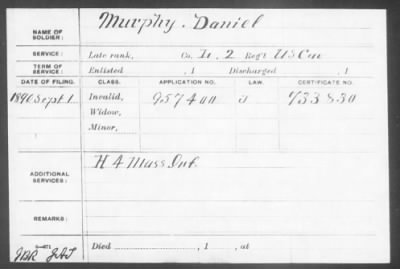 NAME OF SOLDIER: Murphy. Daniel
SERVICE: Late rank, Co. 2 Reg't US Cav
TERM OF SERVICE: Enlisted , 1 Discharged , 1
DATE OF FILING. CLASS. APPLICATION NO. LAW. CERTIFICATE NO.
1890 Sept. 1 Invalid, 957400 J 733830
Widow,
Minor,
ADDITIONAL SERVICES: H 4 Mass Inf.
REMARKS:
Died , 1 , at